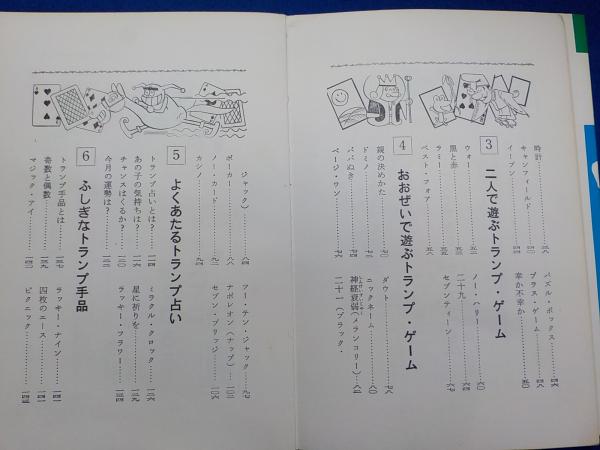 時計…………三八
キャンフィールド……四一
イーブン…………四四
パズル・ボックス……四六
プラス・ゲーム………四八
幸か不幸か…………五〇
3
二人で遊ぶトランプ・ゲーム
ウォー…………五二
黒と赤…………
ラミー…………五六
ベスト・フォア………五八
ノー・ハリー…………
二十九…………
セブンティーン………六七
4
おおぜいで遊ぶトランプ・ゲーム
親の決めかた…………
ドミノ…………
ばばぬき…………
ページ・ワン…………七六
ダウト…………七八
ニックネーム…………八〇
神経衰弱(メランコリー)……八二
二十一(ブラック・
ジャック)…………八四
ポーカー…………
ノー・カード…………
カシノ…………九四
ツー・テン・ジャック……九七
ナポレオン(ナップ)……一〇二
セブン・ブリッジ………一〇六
5
よくあたるトランプ占い
トランプ占いとは?……一一四
あの子の気持ちは?……
チャンスはくるか?……一二〇
今月の運勢は?…………一二三
ミラクル・クロック……一二六
星に祈りを…………
ラッキー・フラワー……
6
ふしぎなトランプ手品
トランプ手品とは………一三七
奇数と偶数…………一三九
マジック・アイ…………
ラッキー・ナイン………一四一
四枚のエース…………
ピクニック…………一四五